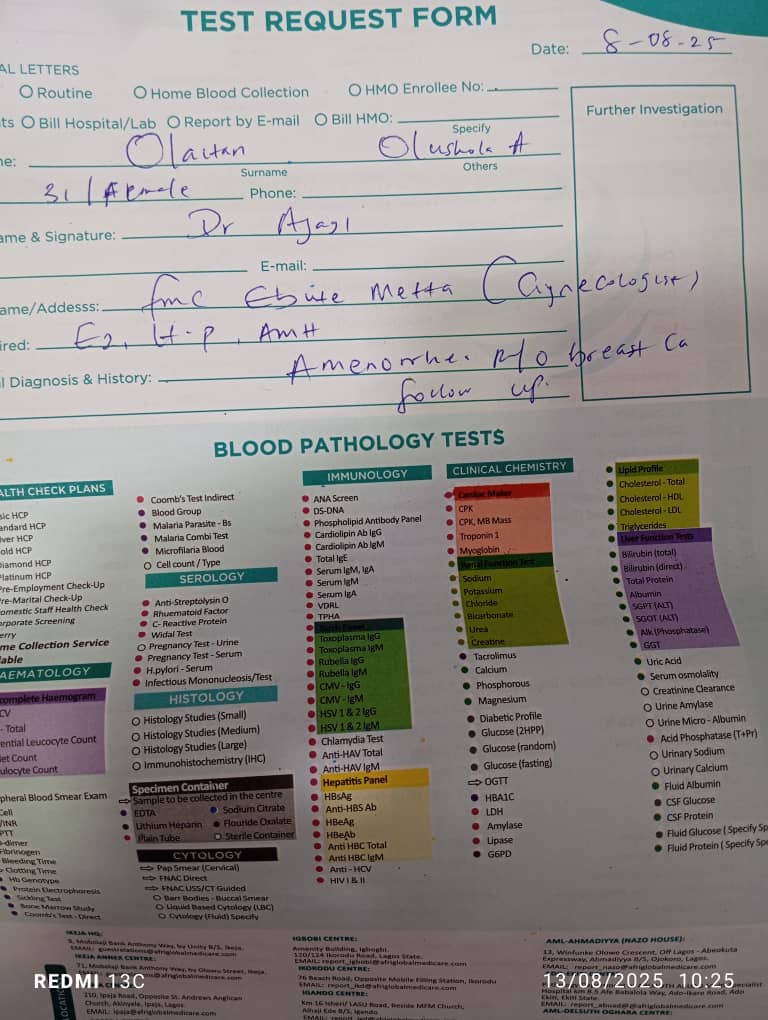 TEST REQUEST FORM
Date: 8-08-25
AL LETTERS
Routine Home Blood Collection HMO Enrollee No:
ts Bill Hospital/Lab Report by E-mail Bill HMO:
Specify
Further Investigation
me: Olaitan Olushola A
Surname Others
31 / Female Phone:
ame & Signature: Dr Ajayi
E-mail:
ame/Addesss: fmc Ebute Metta (Gynecologist)
ired: E2, H.P, AMH
l Diagnosis & History: Amenorrhe. R/o breast Ca
follow up.
BLOOD PATHOLOGY TESTS
ALTH CHECK PLANS
sic HCP
andard HCP
lver HCP
old HCP
iamond HCP
Platinum HCP
Pre-Employment Check-Up
Pre-Marital Check-Up
omestic Staff Health Check
rporate Screening
erry
me Collection Service
lable
AEMATOLOGY
omplete Haemogram
CV
- Total
ential Leucocyte Count
let Count
ulocyte Count
pheral Blood Smear Exam
Cell
/INR
PTT
D-dimer
Fibrinogen
Bleeding Time
Clotting Time
Hb Genotype
Protein Electrophoresis
Sickling Test
Bone Marrow Study
Coomb's Test - Direct
Coomb's Test Indirect
Blood Group
Malaria Parasite - Bs
Malaria Combi Test
Microfilaria Blood
Cell count / Type
SEROLOGY
Anti-Streptolysin O
Rhuematoid Factor
C- Reactive Protein
Widal Test
Pregnancy Test - Urine
Pregnancy Test - Serum
H.pylori - Serum
Infectious Mononucleosis/Test
HISTOLOGY
Histology Studies (Small)
Histology Studies (Medium)
Histology Studies (Large)
Immunohistochemistry (IHC)
Specimen Container
Sample to be collected in the centre
EDTA Sodium Citrate
Lithium Heparin Flouride Oxalate
Plain Tube Sterile Container
CYTOLOGY
Pap Smear (Cervical)
FNAC Direct
FNAC USS/CT Guided
Barr Bodies - Buccal Smear
Liquid Based Cytology (LBC)
Cytology (Fluid) Specify
IMMUNOLOGY
ANA Screen
DS-DNA
Phospholipid Antibody Panel
Cardiolipin Ab IgG
Cardiolipin Ab IgM
Total IgE
Serum IgM, IgA
Serum IgM
Serum IgA
VDRL
TPHA
Toxoplasma IgG
Toxoplasma IgM
Rubella IgG
Rubella IgM
CMV - IgG
CMV - IgM
HSV 1 & 2 IgG
HSV 1 & 2 IgM
Chlamydia Test
Anti-HAV Total
Anti-HAV IgM
Hepatitis Panel
HBsAg
Anti-HBS Ab
HBeAg
HBeAb
Anti HBC Total
Anti HBC IgM
Anti - HCV
HIV I & II
CLINICAL CHEMISTRY
Cardiac Maker
CPK
CPK, MB Mass
Troponin 1
Myoglobin
Renal Function Test
Sodium
Potassium
Chloride
Bicarbonate
Urea
Creatine
Tacrolimus
Calcium
Phosphorous
Magnesium
Diabetic Profile
Glucose (2HPP)
Glucose (random)
Glucose (fasting)
OGTT
HBA1C
LDH
Amylase
Lipase
G6PD
Lipid Profile
Cholesterol - Total
Cholesterol - HDL
Cholesterol - LDL
Triglycerides
Liver Function Tests
Bilirubin (total)
Bilirubin (direct)
Total Protein
Albumin
SGPT (ALT)
SGOT (ALT)
Alk (Phosphatase)
GGT
Uric Acid
Serum osmolality
Creatinine Clearance
Urine Amylase
Urine Micro - Albumin
Acid Phosphatase (T+Pr)
Urinary Sodium
Urinary Calcium
Fluid Albumin
CSF Glucose
CSF Protein
Fluid Glucose ( Specify Sp
Fluid Protein ( Specify Spe
IKEJA HQ:
5, Mobolaji Bank Anthony Way, by Unity B/S, Ikeja.
IKEJA ANNEX CENTRE:
71, Mobolaji Bank Anthony Way, by Olowu Street, Ikeja.
110, Ipaja Road, Opposite St. Andrews Anglican
Church, Akinyele, Ipaja, Lagos.
IGBOBI CENTRE:
Amenity Building, Igbobi.
120/124 Ikorodu Road, Lagos State.
IKORODU CENTRE:
76 Beach Road, Opposite Mobile Filling Station, Ikorodu
IGANDO CENTRE:
Km 16 Isheri/ LASU Road, Beside MFM Church,
AML-AHMADIYYA (NAZO HOUSE):
13, Winfunke Olowe Crescent, Off Lagos - Abeokuta
Expressway, Ahmadiyya B/S, Ojokoro, Lagos.
AML-DELSUTH OGHARA CENTRE:
REDMI 13C
13/08/2025 10:25